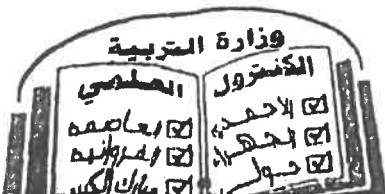 وزارة التربية
الكنترول العلمي
☑ الاحمدي
☑ الجهراء
☑ حولي
☑ العاصمه
☑ الفروانيه
☑ مبارك الكبير